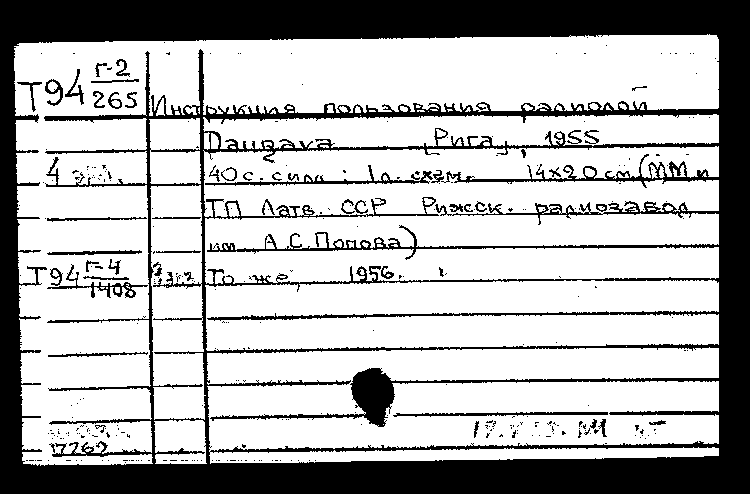 Т94 г-2/265 Инструкция пользования радиолой
Daugava [Рига], 1955
4 экз. 40 с. с илл; 1 л. схем. 14x20 см (ММ и
ТП Латв. ССР Рижск. радиозавод
им. А.С.Попова)
Т94 г-4/1408 То же, 1956.
17262